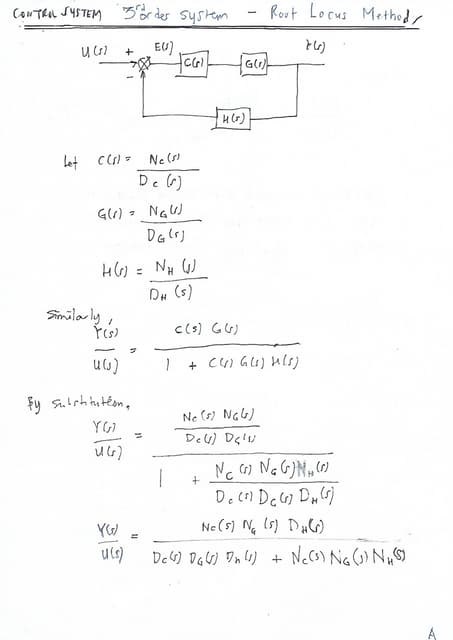 CONTROL SYSTEM 3rd order system - Root Locus Method,
U(s) + E(s) C(s) G(s) Y(s)
-
H(s)
Let C(s) = Nc(s)
Dc(s)
G(s) = NG(s)
DG(s)
H(s) = NH(s)
DH(s)
Similarly,
Y(s) = C(s) G(s)
U(s) 1 + C(s) G(s) H(s)
By substitution,
Y(s) = Nc(s) NG(s)
Dc(s) DG(s)
U(s) 1 + Nc(s) NG(s) NH(s)
Dc(s) DG(s) DH(s)
Y(s) = Nc(s) NG(s) DH(s)
U(s) Dc(s) DG(s) DH(s) + Nc(s) NG(s) NH(s)
A